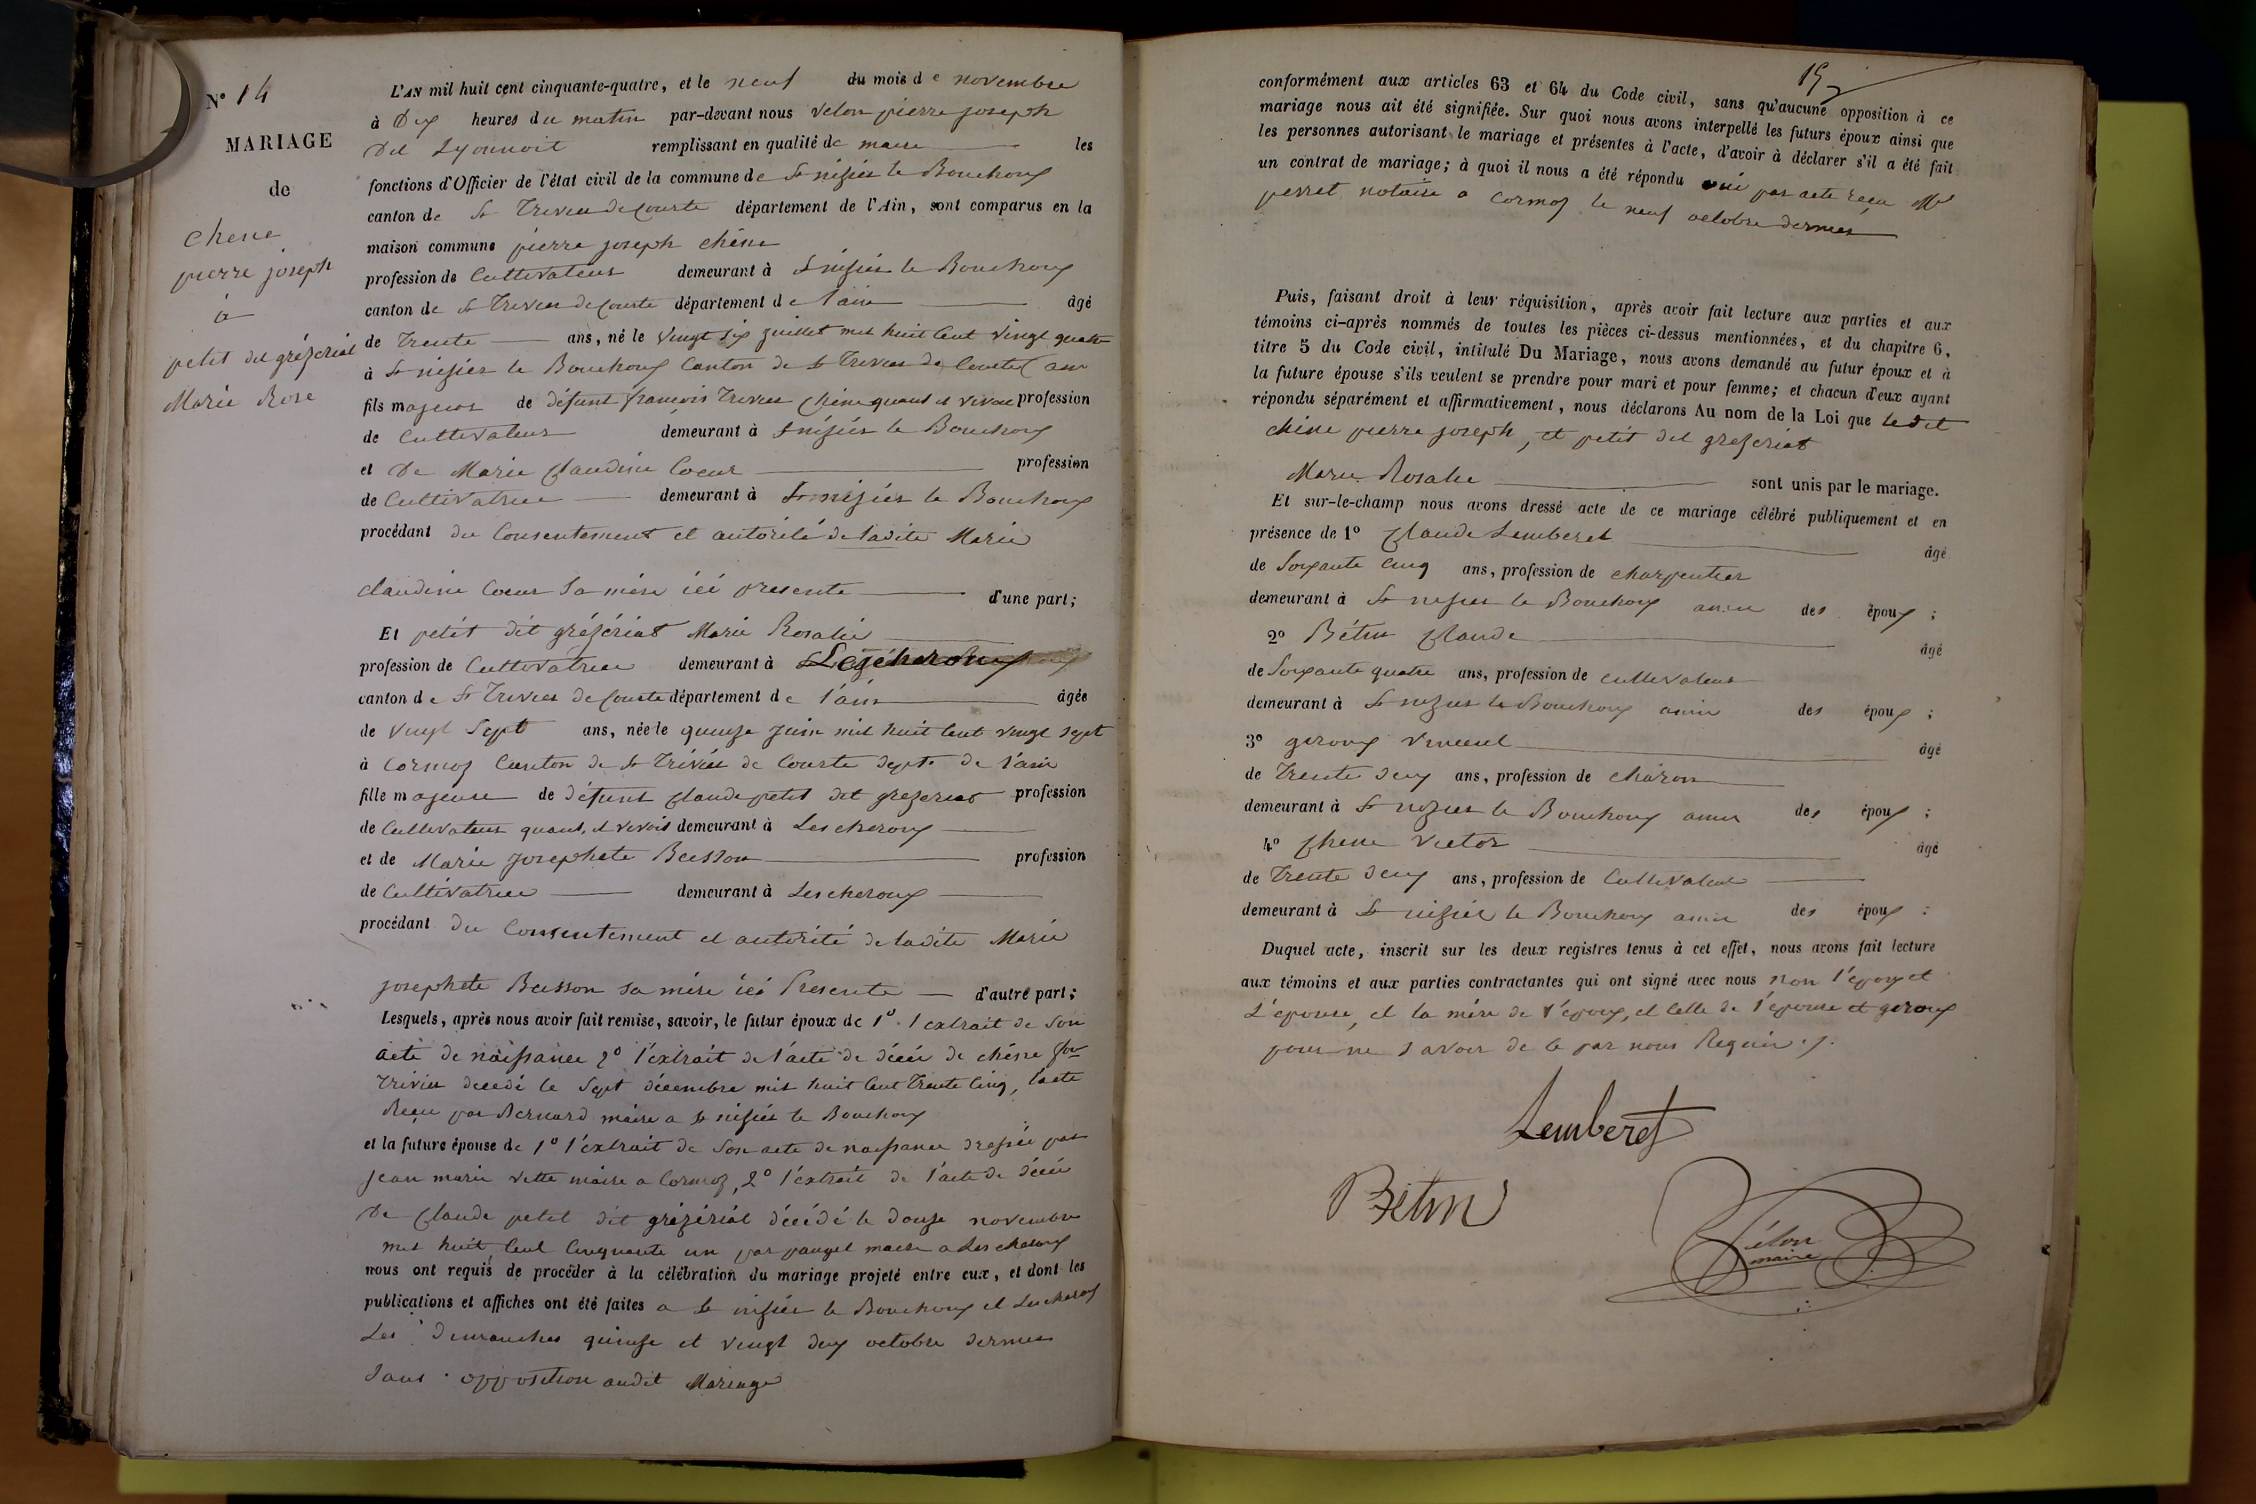 N° 14
MARIAGE
de
Chene
pierre joseph
à
petit dit grézériat
Marie Rose
L'AN mil huit cent cinquante-quatre, et le neuf du mois de novembre
à Dix heures du matin par-devant nous Velon pierre joseph
Dit Lyonnoit remplissant en qualité de maire les
fonctions d'Officier de l'état civil de la commune de St nisier le Bouchoux
canton de St Trivier de Courte département de l'Ain, sont comparus en la
maison commune pierre joseph chêne
profession de Cultivateur demeurant à St nisier le Bouchoux
canton de St Trivier de Courte département de l'ain âgé
de Trente ans, né le vingt six juillet mil huit Cent vingt quatre
à St nisier le Bouchoux Canton de St Trivier de Courte (ain
fils majeur de défunt françois Trivier Chêne quand il vivoit profession
de Cultivateur demeurant à St nisier le Bouchoux
et De Marie Claudine Coeur profession
de Cultivatrice demeurant à St nizier le Bouchoux
procédant du Consentement et autorité de ladite Marie
claudine Coeur Sa mère ici presente d'une part;
Et petit dit grézériat Marie Rosalie
profession de Cultivatrice demeurant à Lescheroux
canton de St Trivier de Courte département de l'ain âgée
de vingt Sept ans, née le quinze juin mil huit Cent vingt sept
à Cormoz Canton de St Trivier de Courte dept. de l'ain
fille majeure de défunt Claude petit dit grezeriat profession
de Cultivateur quand il vivoit demeurant à Lescheroux
et de Marie Josephete Buisson profession
de Cultivatrice demeurant à Lescheroux
procédant du Consentement et autorité de ladite Marie
josephete Buisson sa mère ici Presente d'autre part;
Lesquels, après nous avoir fait remise, savoir, le futur époux de 1° l'extrait de Son
acte de naissance 2° l'extrait de l'acte de décès de chêne fois
Trivier decedé le Sept décembre mil huit Cent Trente Cinq, l'acte
Reçu par Bernard maire a St nisier le Bouchoux
et la future épouse de 1° l'extrait de Son acte de naissance dressée par
jean marie vette maire a Cormoz, 2° l'extrait de l'acte de décès
De Claude petit dit grézériat décédé le douze novembre
mil huit Cent Cinquante un par pauget maire a Lescheroux
nous ont requis de procéder à la célébration du mariage projeté entre eux, et dont les
publications et affiches ont été faites a St nisier le Bouchoux et Lescheroux
Les Dimanches quinze et vingt deux octobre dernier
Sans opposition audit Mariage
15
conformément aux articles 63 et 64 du Code civil, sans qu'aucune opposition à ce
mariage nous ait été signifiée. Sur quoi nous avons interpellé les futurs époux ainsi que
les personnes autorisant le mariage et présentes à l'acte, d'avoir à déclarer s'il a été fait
un contrat de mariage; à quoi il nous a été répondu oui par acte reçu Me
perret notaire a Cormoz le neuf octobre dernier
Puis, faisant droit à leur réquisition, après avoir fait lecture aux parties et aux
témoins ci-après nommés de toutes les pièces ci-dessus mentionnées, et du chapitre 6,
titre 5 du Code civil, intitulé Du Mariage, nous avons demandé au futur époux et à
la future épouse s'ils veulent se prendre pour mari et pour femme; et chacun d'eux ayant
répondu séparément et affirmativement, nous déclarons Au nom de la Loi que ledit
chêne pierre joseph, et petit dit grezeriat
Marie Rosalie sont unis par le mariage.
Et sur-le-champ nous avons dressé acte de ce mariage célébré publiquement et en
présence de 1° Claude Lemberet âgé
de Soixante Cinq ans, profession de charpentier
demeurant à St nisier le Bouchoux amie des époux;
2° Bétin Claude âgé
de Soixante quatre ans, profession de cultivateur
demeurant à St nizier le Bouchoux amie des époux;
3° giroux vincent âgé
de Trente deux ans, profession de charon
demeurant à St nizier le Bouchoux amie des époux;
4° Chene Victor âgé
de Trente deux ans, profession de Cultivateur
demeurant à St nisier le Bouchoux amie des époux:
Duquel acte, inscrit sur les deux registres tenus à cet effet, nous avons fait lecture
aux témoins et aux parties contractantes qui ont signé avec nous non l'époux et
L'épouse, et la mère de l'époux, et Celle de l'épouse et giroux
pour ne savoir de ce par nous Requis.
Lemberet
Bétin
Vélon
maire